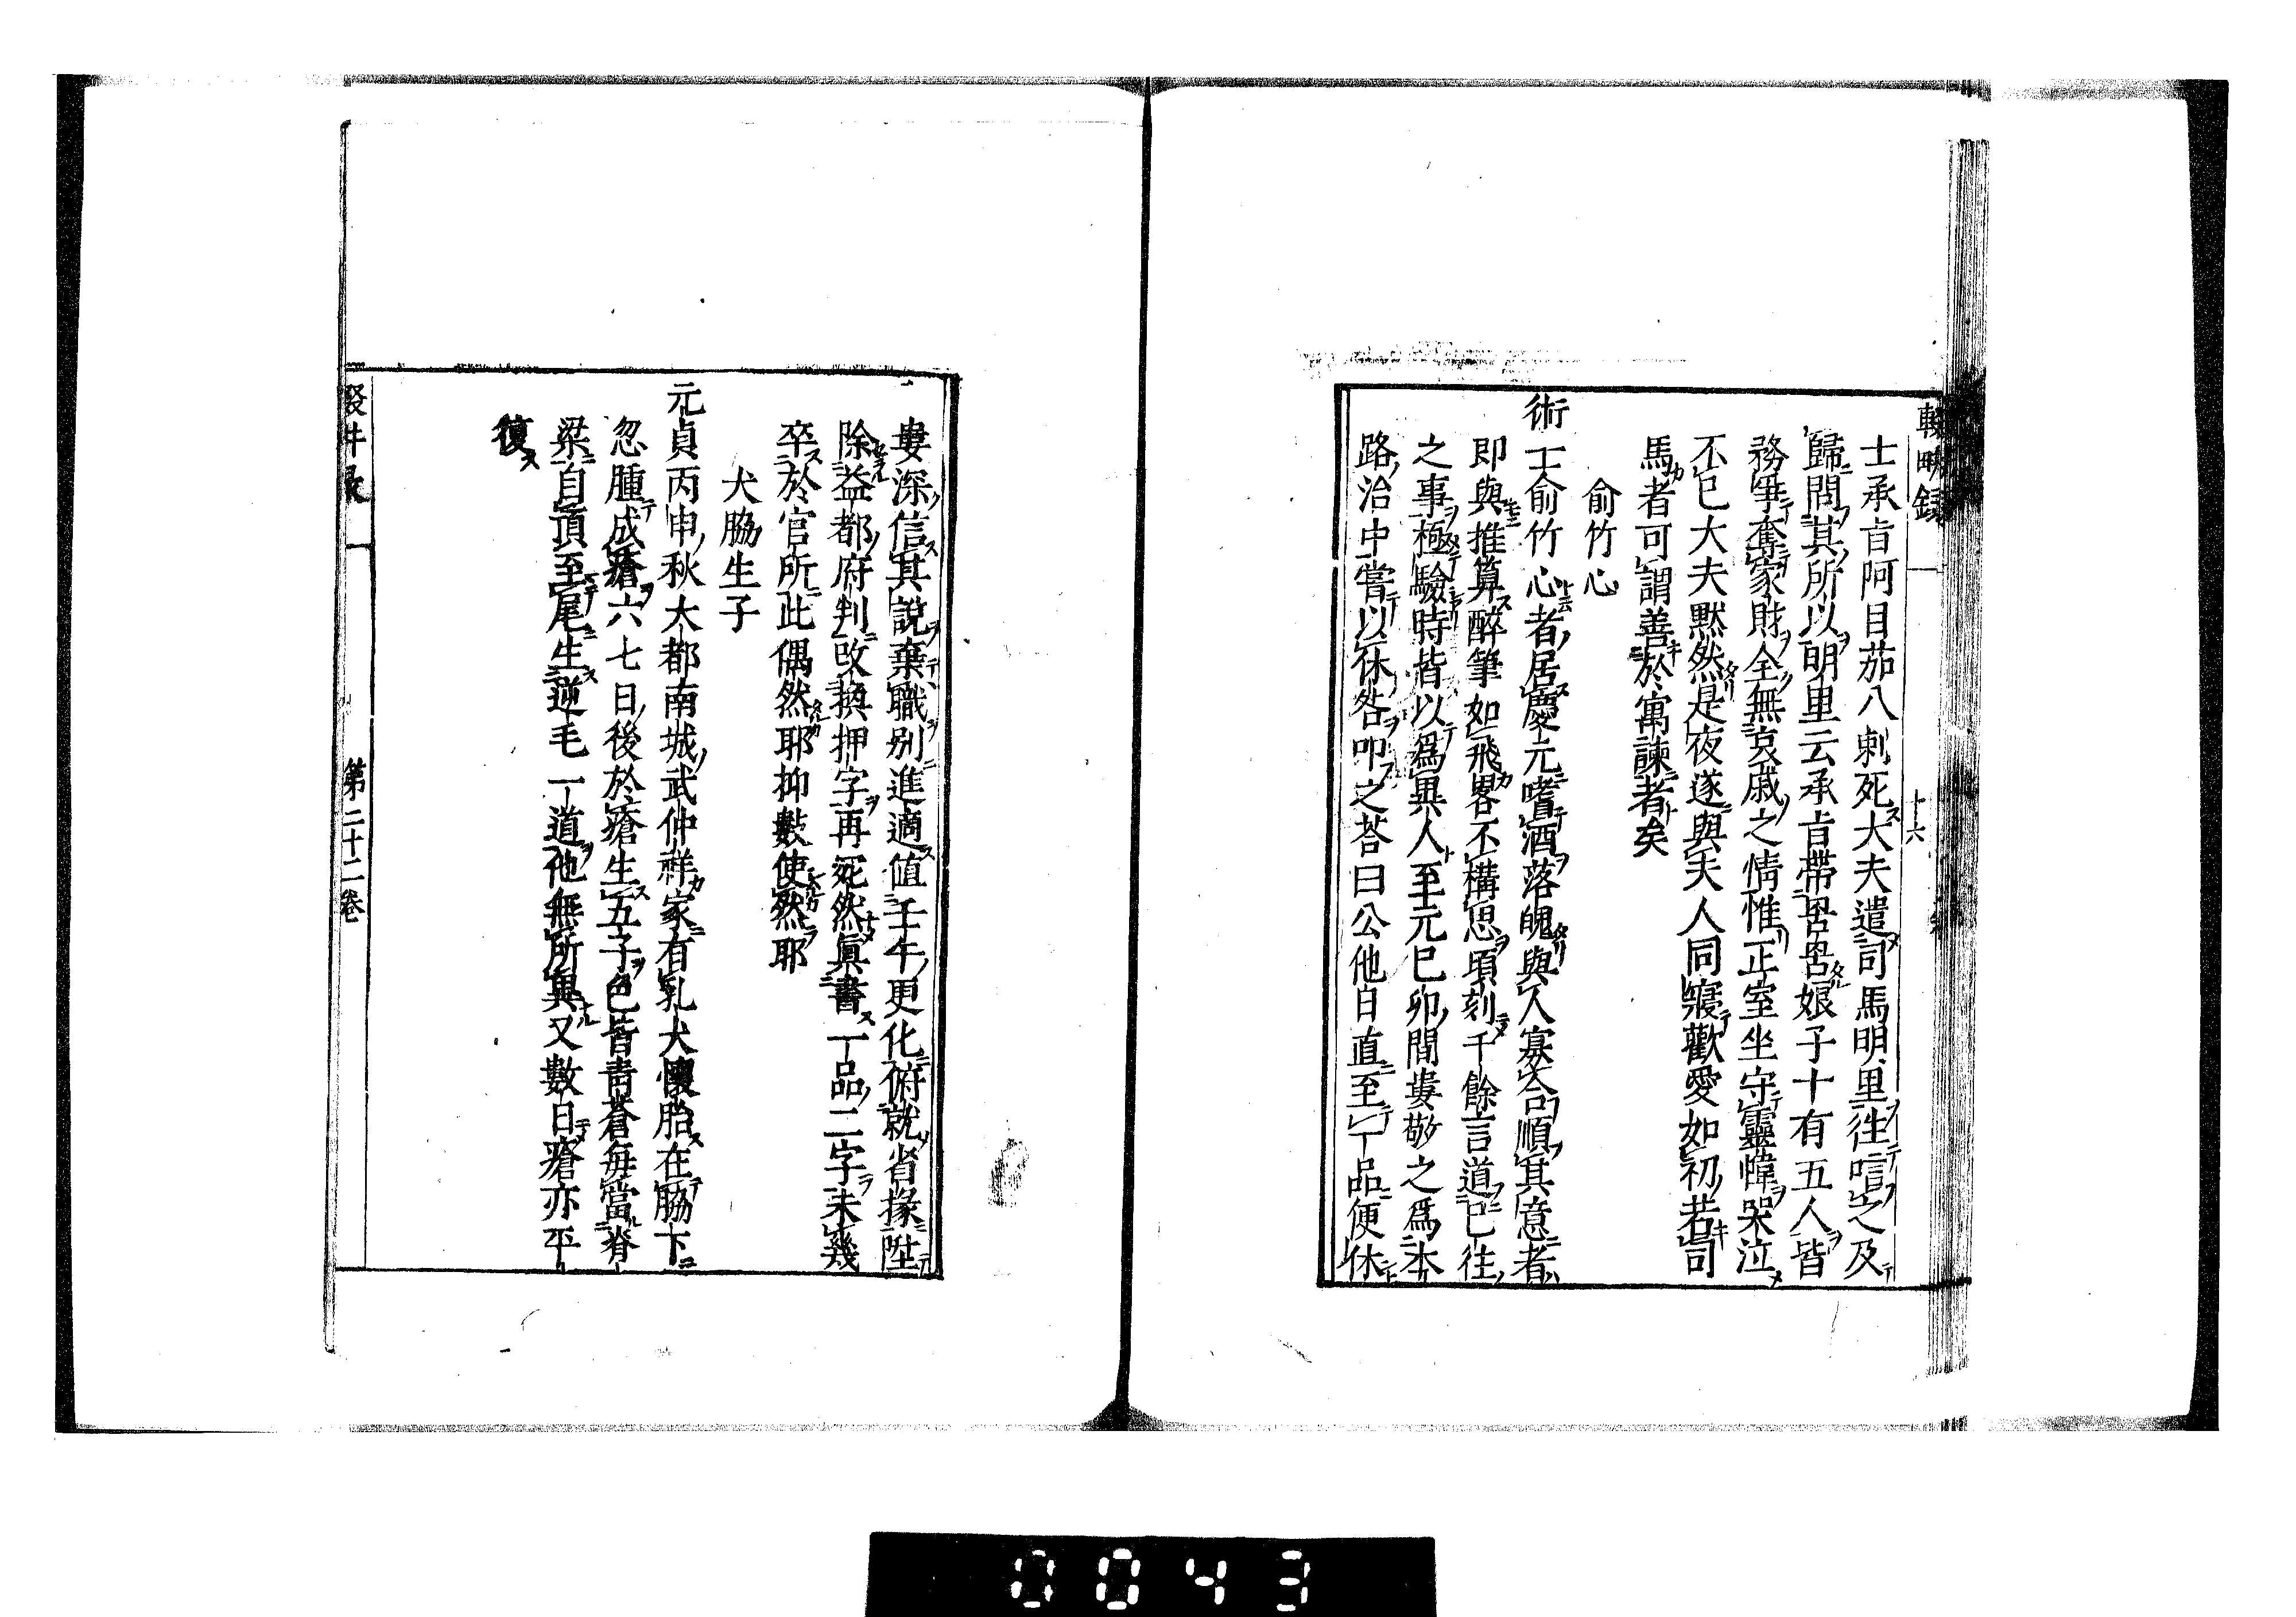 輟畊録
十六
士承旨阿目茄八剌死大夫遣司馬明里徃唁之及
歸問其所以明里云承旨帶罟罟娘子十有五人皆
務爭奪家財全無哀戚之情惟正室坐守靈幃哭泣
不已大夫默然是夜遂與夫人同寢歡愛如初若司
馬者可謂善於寓諫者矣
俞竹心
術士俞竹心者居慶元嗜酒落魄與人寡合順其意者
即與推算醉筆如飛畧不構思頃刻千餘言道已往
之事極驗時皆以爲異人至元已卯間婁敬之爲本
路治中嘗以休咎叩之荅曰公他日直至一品便休
婁深信其說棄職别進適值壬午更化俯就省掾陞
除益都府判改換押字再宛然眞書一品二字未幾
卒於官所此偶然耶抑數使然耶
犬脇生子
元貞丙申秋大都南城武仲祥家有乳犬懷胎在脇下
忽腫成瘡六七日後於瘡生五子色皆青蒼每當脊
梁自頂至尾生逆毛一道他無所異又數日瘡亦平
復
第二十二卷